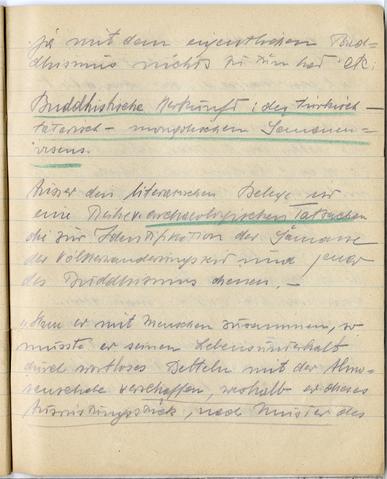 ja mit dem eigentlichen Bud-
dhismus nichts zu tun hat etc.
Buddhistische Herkunft der türkisch-
tatarisch - mongolischen Samanen-
wesens.
Ausser den literarischen Belege
eine archaeologischen Tatsachen
die zur Identifikation der Samane
der Völkerwanderungszeit und jener
des Buddhismus dienen. —
er mit Menschen zusammen, so
musste er seinen Lebensunterhalt
durch wortloses Betteln mit der Almo-
senschale verschaffen, weshalb er dieses
Ausrüstungsstück, nach Muster des